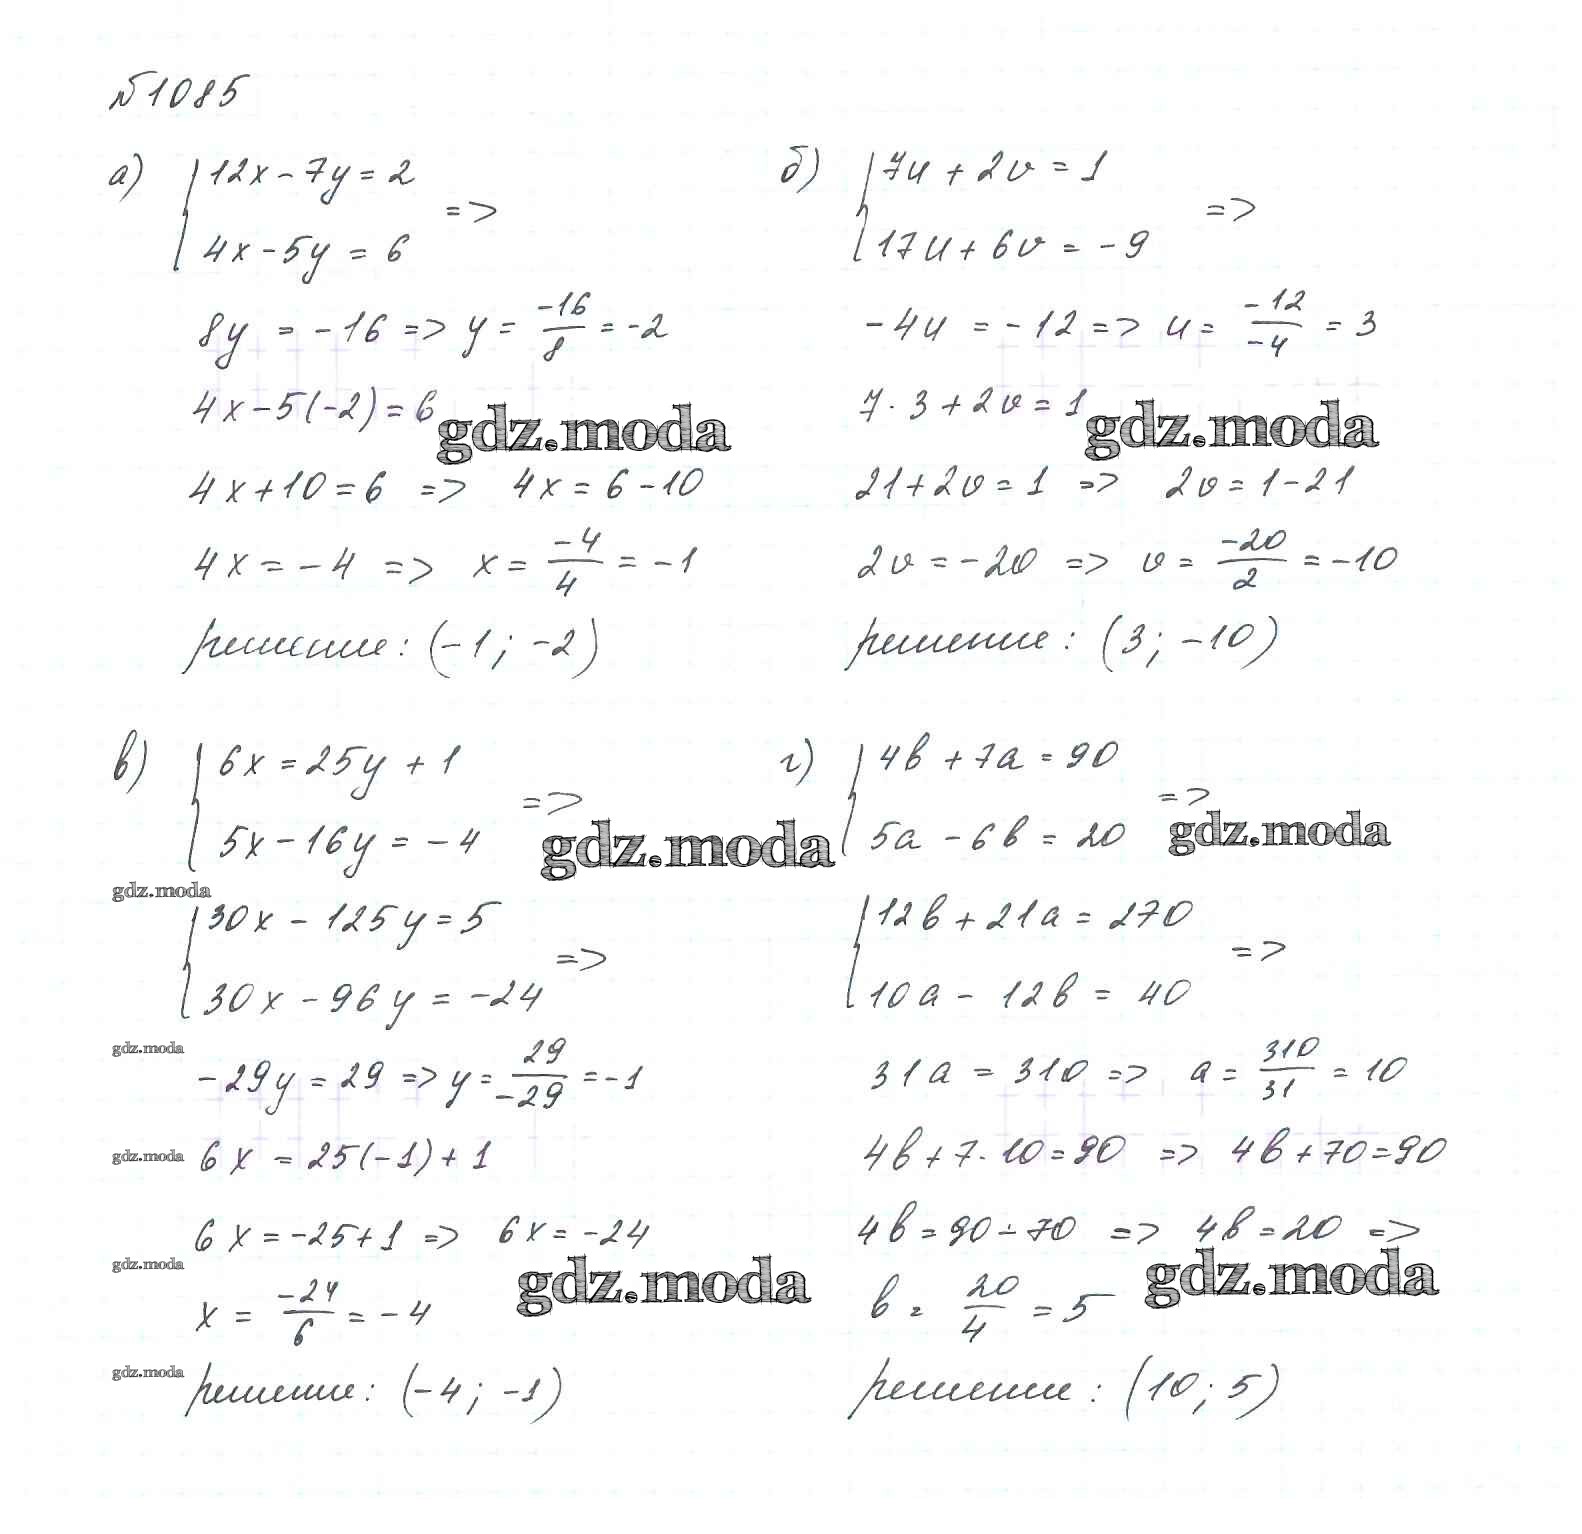 №1085
а) 12x - 7y = 2
4x - 5y = 6 =>
8y = -16 => y = -16/8 = -2
4x - 5(-2) = 6
gdz.moda
4x + 10 = 6 => 4x = 6 - 10
4x = -4 => x = -4/4 = -1
решение: (-1; -2)
б) 7u + 2v = 1
17u + 6v = -9 =>
-4u = -12 => u = -12/-4 = 3
7 · 3 + 2v = 1
gdz.moda
21 + 2v = 1 => 2v = 1 - 21
2v = -20 => v = -20/2 = -10
решение: (3; -10)
в) 6x = 25y + 1
5x - 16y = -4 =>
gdz.moda
gdz.moda
30x - 125y = 5
30x - 96y = -24 =>
gdz.moda
-29y = 29 => y = 29/-29 = -1
gdz.moda
6x = 25(-1) + 1
6x = -25 + 1 => 6x = -24
gdz.moda
gdz.moda
x = -24/6 = -4
gdz.moda
решение: (-4; -1)
г) 4b + 7a = 90
5a - 6b = 20 =>
gdz.moda
12b + 21a = 270
10a - 12b = 40 =>
31a = 310 => a = 310/31 = 10
4b + 7 · 10 = 90 => 4b + 70 = 90
4b = 90 - 70 => 4b = 20 =>
gdz.moda
b = 20/4 = 5
решение: (10; 5)